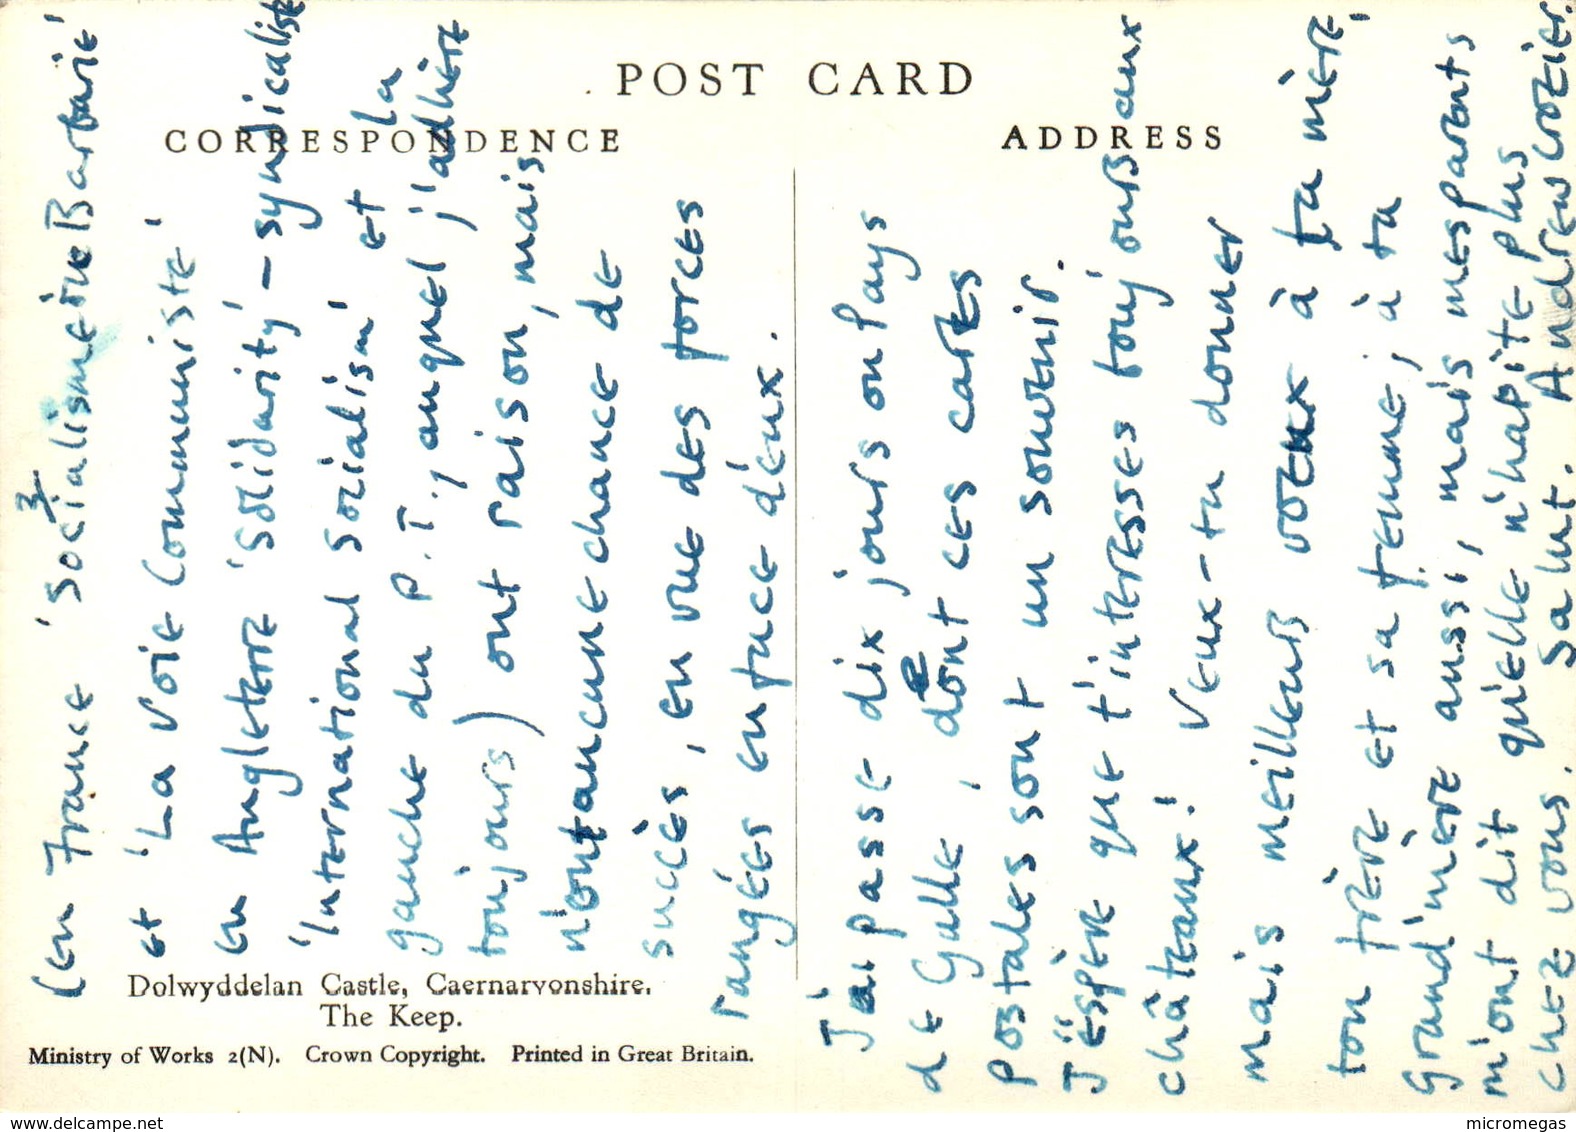 POST CARD
CORRESPONDENCE
ADDRESS
(en France 'Socialisme ou Barbarie'
et 'La Voie Communiste'
en Angleterre 'Solidarity' – syndicaliste
'International Socialism' et la
gauche du P.T., auquel j'adhère
toujours) ont raison, mais
n'ont aucune chance de
succès, en vue des forces
rangées en face d'eux.
J'ai passe dix jours on Pays
de Galle, dont ces cartes
postales sont un souvenir.
J'éspère que t'interesses toujours aux
châteaux! Veux-tu donner
mais meilleurs voeux à ta mère,
ton frère et sa femme, à ta
Grand'mère aussi, mais mes parents
m'ont dit qu'elle n'habite plus
chez vous. Salut. Andrew Crozier.
Dolwyddelan Castle, Caernarvonshire.
The Keep.
Ministry of Works 2(N). Crown Copyright. Printed in Great Britain.
delcampe.net
micromegas